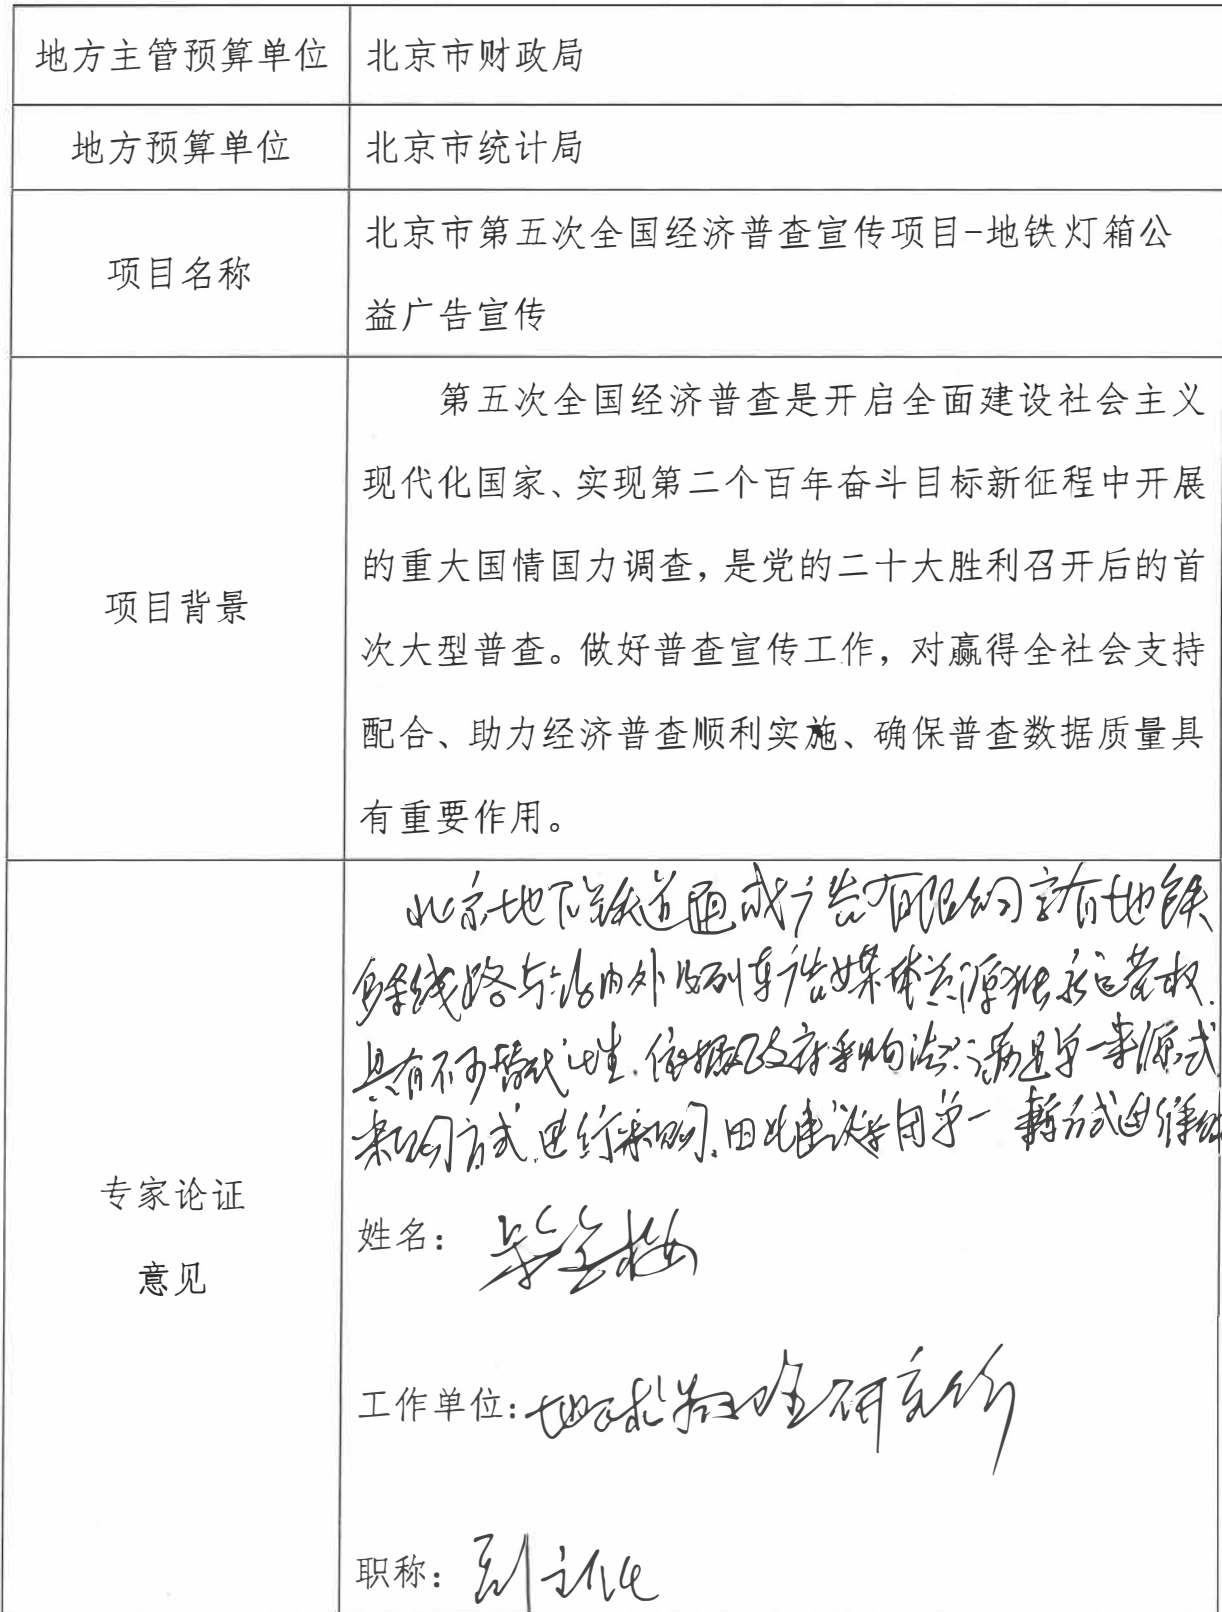 地方主管预算单位
北京市财政局
地方预算单位
北京市统计局
项目名称
北京市第五次全国经济普查宣传项目-地铁灯箱公
益广告宣传
项目背景
第五次全国经济普查是开启全面建设社会主义
现代化国家、实现第二个百年奋斗目标新征程中开展
的重大国情国力调查，是党的二十大胜利召开后的首
次大型普查。做好普查宣传工作，对赢得全社会支持
配合、助力经济普查顺利实施、确保普查数据质量具
有重要作用。
专家论证
意见
北京地下铁道通成广告有限公司享有地铁
多条线路与站内外及列车广告媒体资源独家运营权.
具有不可替代性.依据政府采购法.满足单一来源式
采购方式进行采购.因此建议采用单一 方式进行采购
姓名：
工作单位：地球物理研究所
职称：